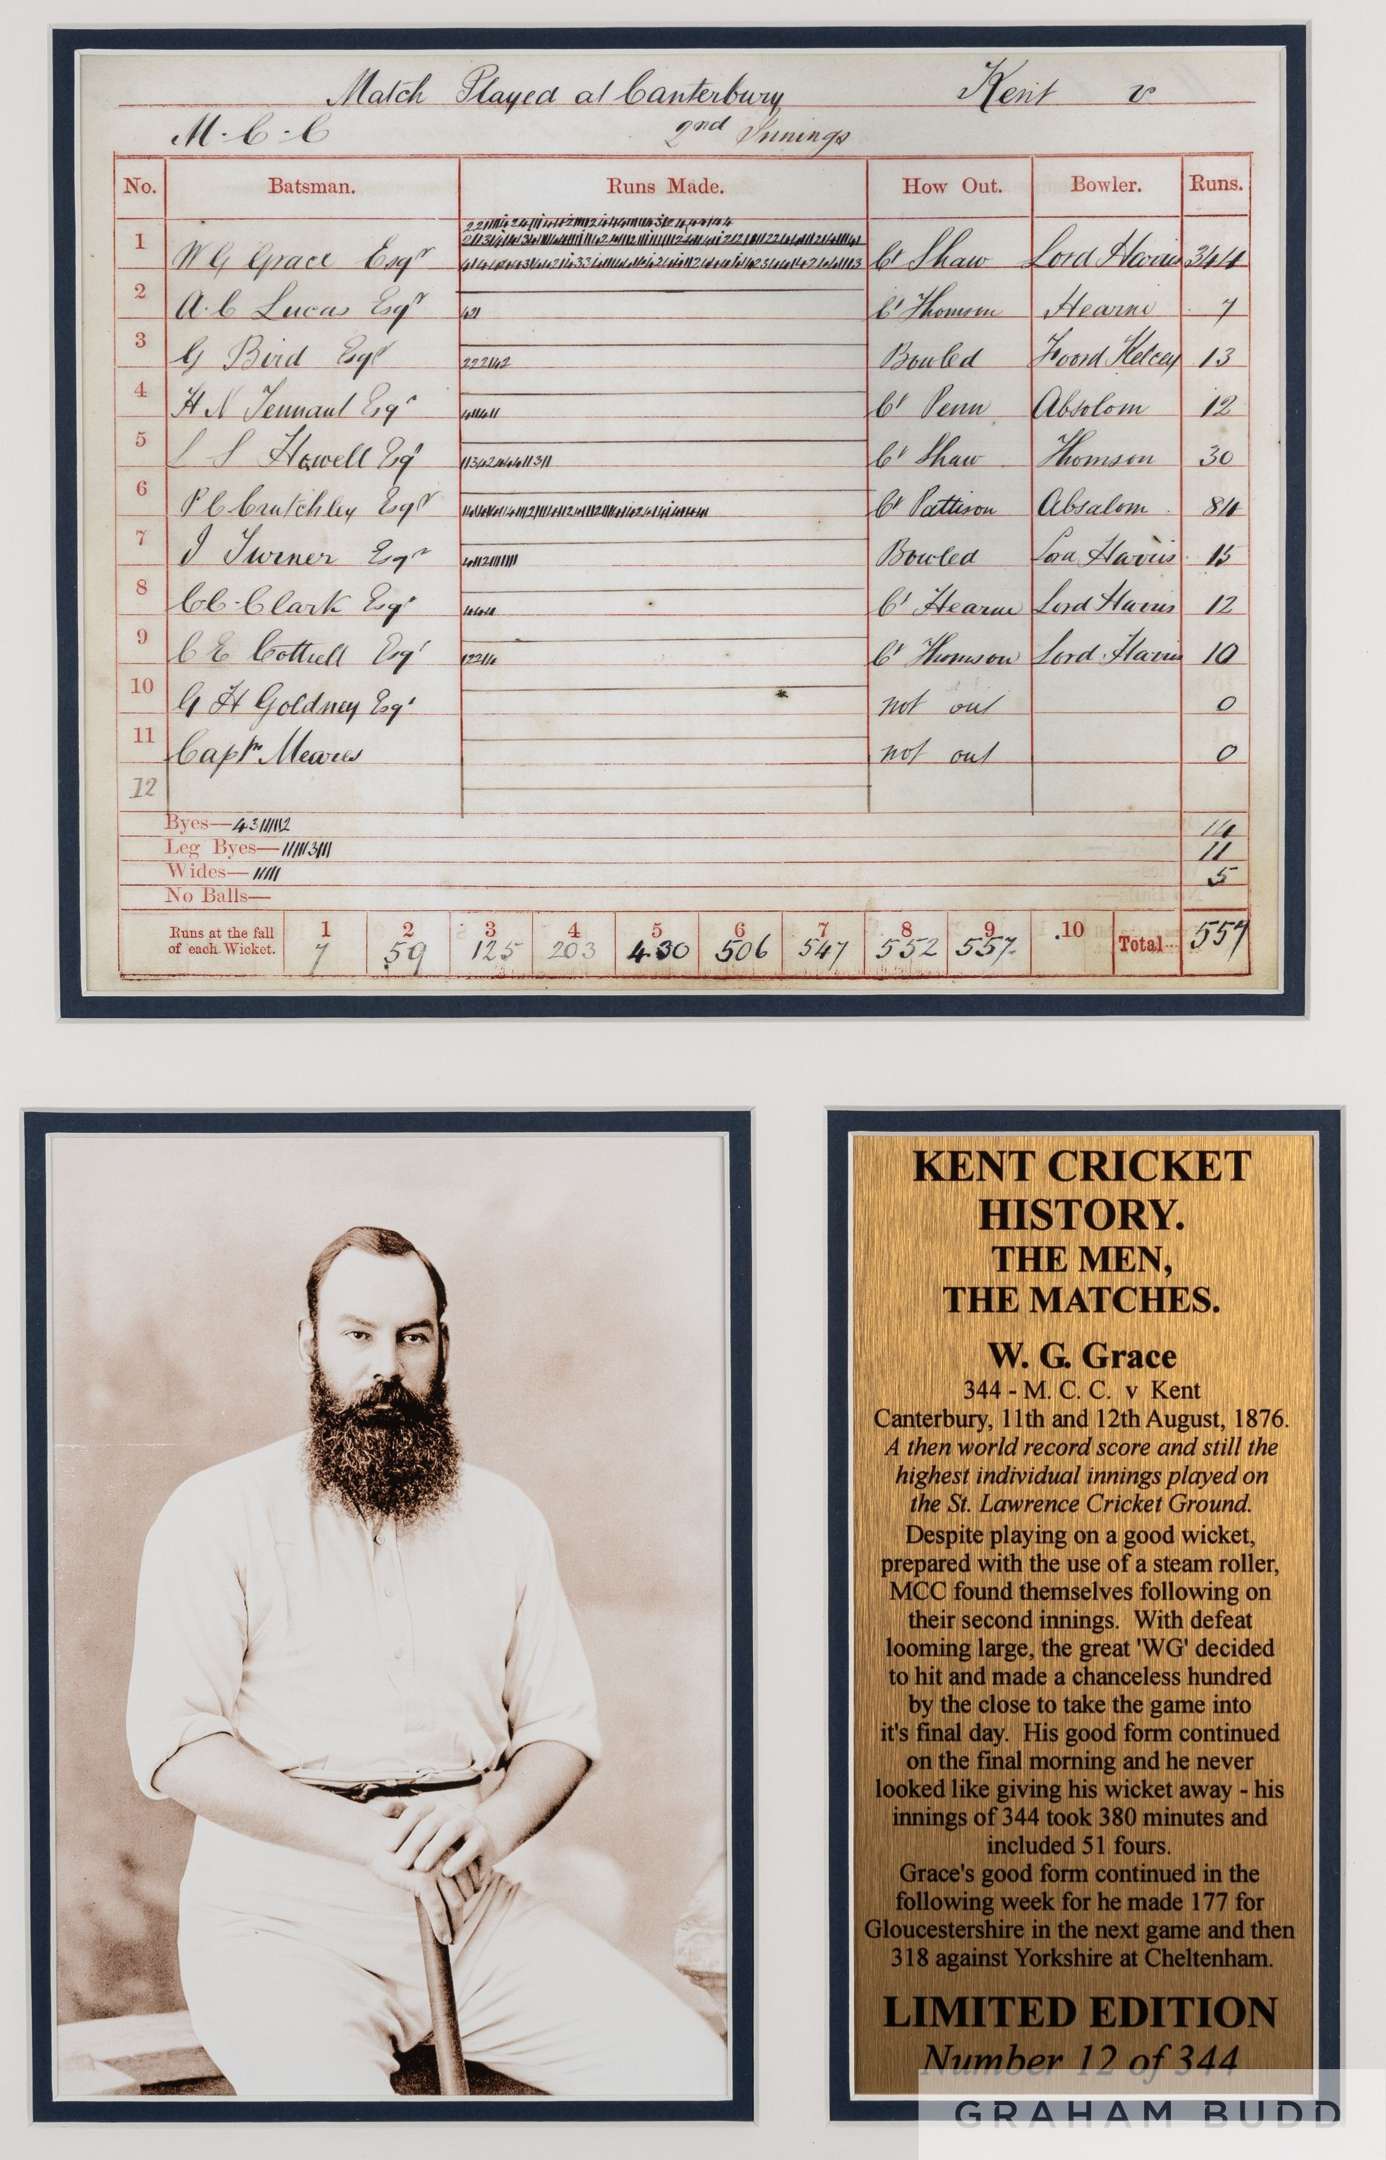 Match Played at Canterbury Kent v
M.C.C 2nd Innings
No. Batsman. Runs Made. How Out. Bowler. Runs.
1 W G Grace Esqr Ct Shaw Lord Harris 344
2 A. C Lucas Esqr 421 Ct Thomson Hearne 7
3 G Bird Esqr 222142 Bowled Foord Kelcey 13
4 H N Tennant Esqr Ct Penn Absolom 12
5 Howell Esqr Ct Shaw Thomson 30
6 P C Crutchley Esqr Ct Pattison Absalom 84
7 J Turner Esqr Bowled Lord Harris 15
8 C C. Clark Esqr 444 Ct Hearne Lord Harris 12
9 C E Cottrell Esqr 12214 Ct Thomson Lord Harris 10
10 G H Goldney Esqr not out 0
11 Captn Meares not out 0
12
Byes— 14
Leg Byes— 11
Wides— 11111 5
No Balls—
Runs at the fall 1 2 3 4 5 6 7 8 9 10 Total
of each Wicket. 7 59 125 203 430 506 547 552 557 557
KENT CRICKET
HISTORY.
THE MEN,
THE MATCHES.
W. G. Grace
344 - M. C. C. v Kent
Canterbury, 11th and 12th August, 1876.
A then world record score and still the
highest individual innings played on
the St. Lawrence Cricket Ground.
Despite playing on a good wicket,
prepared with the use of a steam roller,
MCC found themselves following on
their second innings. With defeat
looming large, the great 'WG' decided
to hit and made a chanceless hundred
by the close to take the game into
it's final day. His good form continued
on the final morning and he never
looked like giving his wicket away - his
innings of 344 took 380 minutes and
included 51 fours.
Grace's good form continued in the
following week for he made 177 for
Gloucestershire in the next game and then
318 against Yorkshire at Cheltenham.
LIMITED EDITION
Number 12 of 344
GRAHAM BUDD